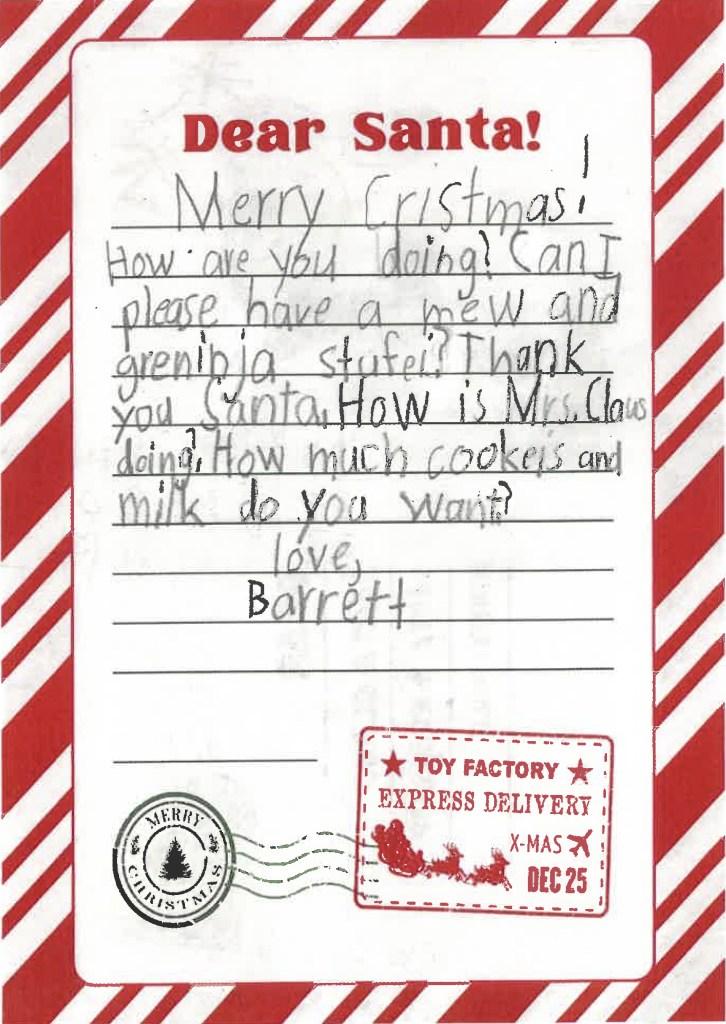 Dear Santa!
Merry Cristmas!
How are you doing? Can I
please have a mew and
greninja stufei? Thank
you Santa. How is Mrs. Claus
doing? How much cookeis and
milk do you want?
love,
Barrett
TOY FACTORY
EXPRESS DELIVERY
X-MAS
DEC 25
MERRY
CHRISTMAS